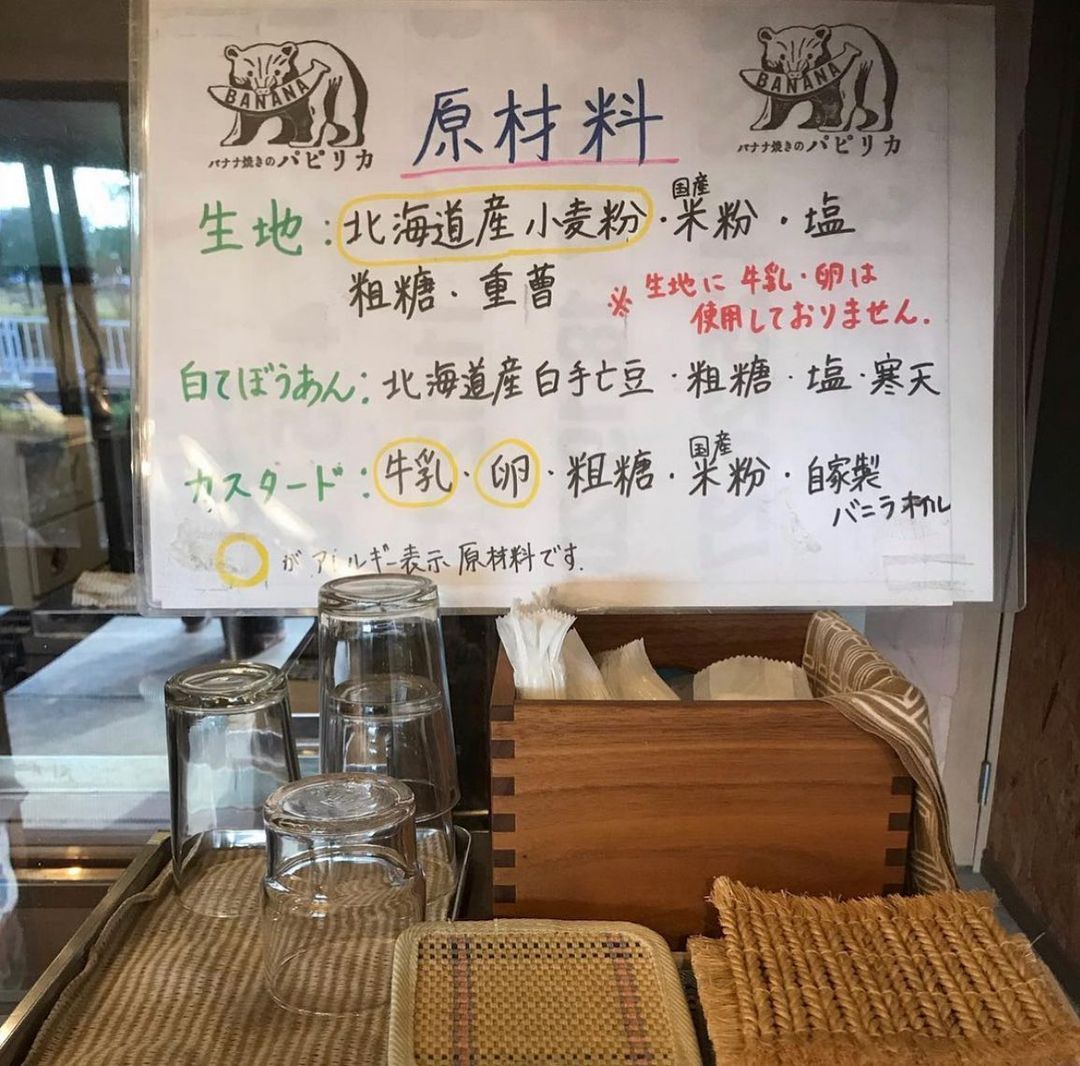 BANANA
バナナ焼きのパピリカ
BANANA
バナナ焼きのパピリカ
原材料
生地:北海道産小麦粉・国産米粉・塩
粗糖・重曹
※生地に牛乳・卵は
使用しておりません.
白てぼうあん:北海道産白手亡豆・粗糖・塩・寒天
カスタード:牛乳・卵・粗糖・国産米粉・自家製
バニラオイル
○がアレルギー表示原材料です.